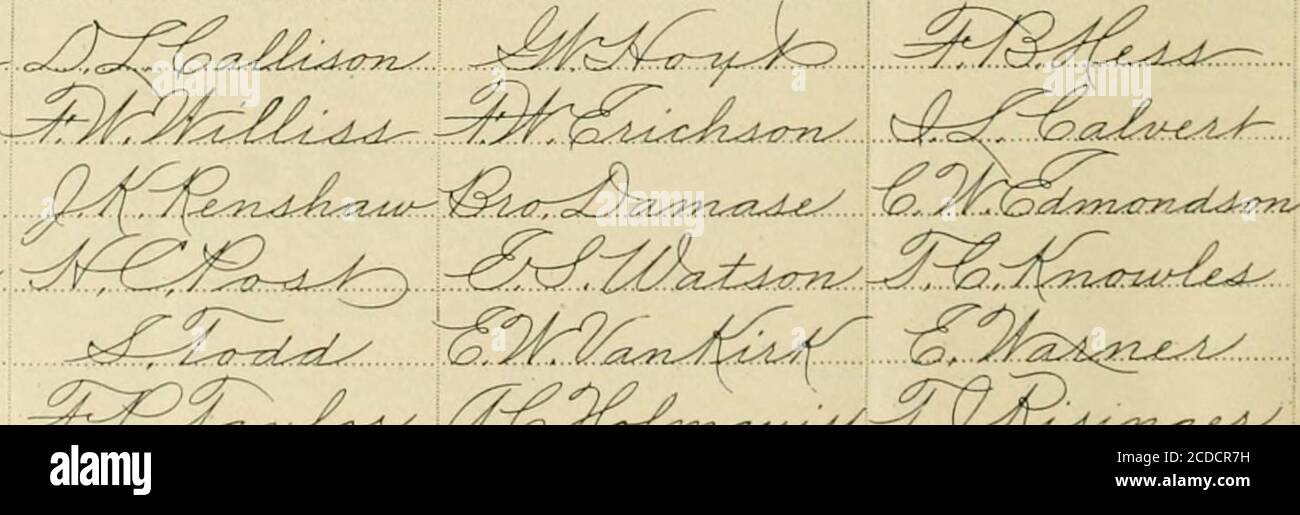 D. L. Callison G. W. Hoyt F. B. Hess
F. W. Williss F. W. Erichson I. L. Calvert
J. K. Renshaw Bro. Damase C. W. Edmondson
H. C. Post E. S. Watson T. C. Knowles
S. Todd E. W. Van Kirk E. Warner
F. P. Taylor A. C. Holmquist T. J. Risinger
alamy
Image ID: 2CDCR7H
www.alamy.com